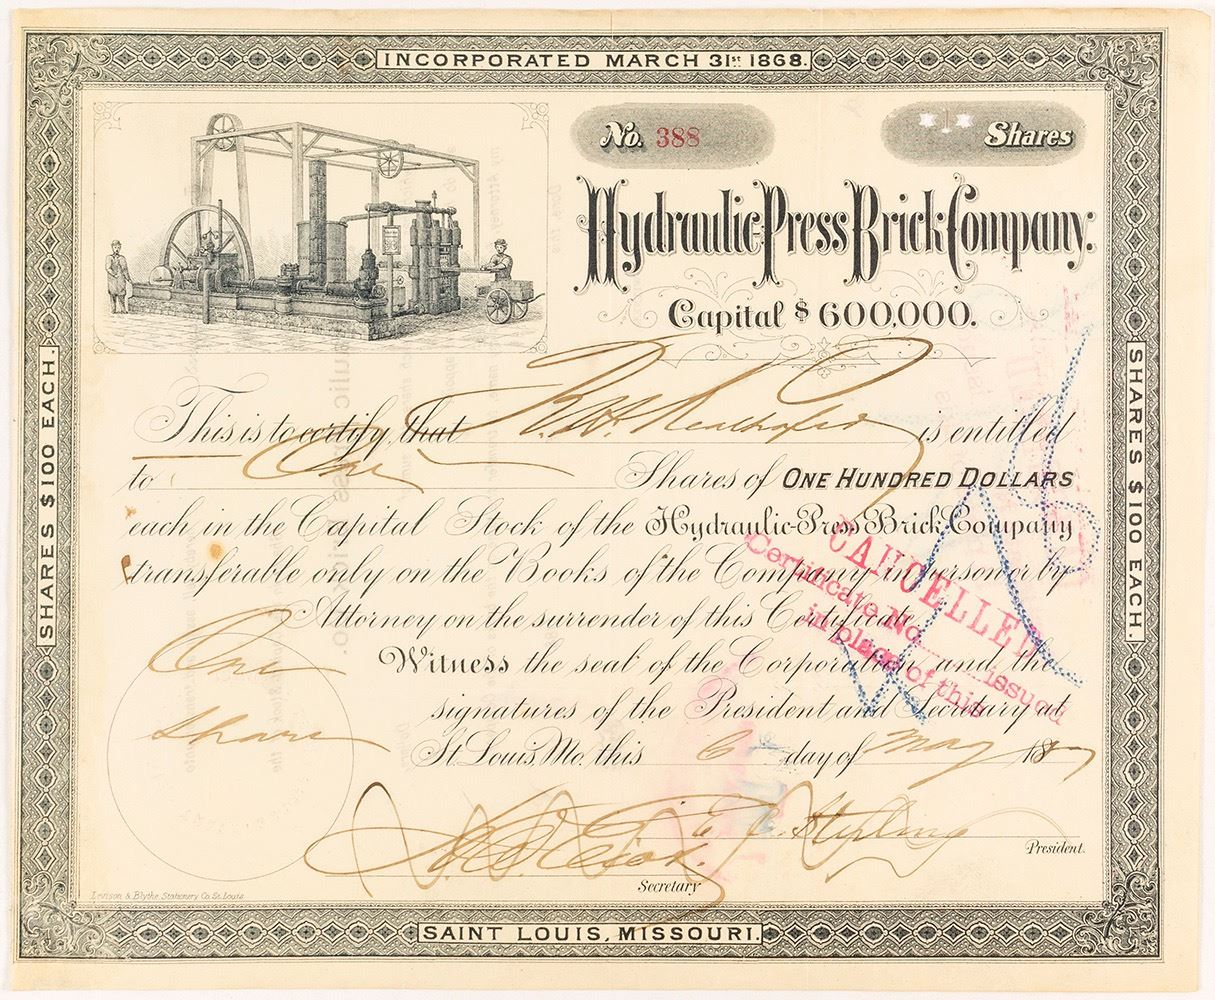 INCORPORATED MARCH 31st 1868.
No. 388
Shares
Hydraulic-Press Brick Company.
Capital $ 600,000.
SHARES $100 EACH.
This is to certify, that is entitled
to One Shares of ONE HUNDRED DOLLARS
each in the Capital Stock of the Hydraulic-Press Brick Company
transferable only on the Books of the Company in person or by
Attorney on the surrender of this Certificate.
CANCELLED
Certificate No. issued
in place of this
One
Share
Witness the seal of the Corporation, and the
signatures of the President and Secretary at
St. Louis, Mo. this 6 day of May 18
E. C. Sterling
President.
Secretary
Levison & Blythe Stationery Co. St. Louis
SHARES $100 EACH.
SAINT LOUIS, MISSOURI.